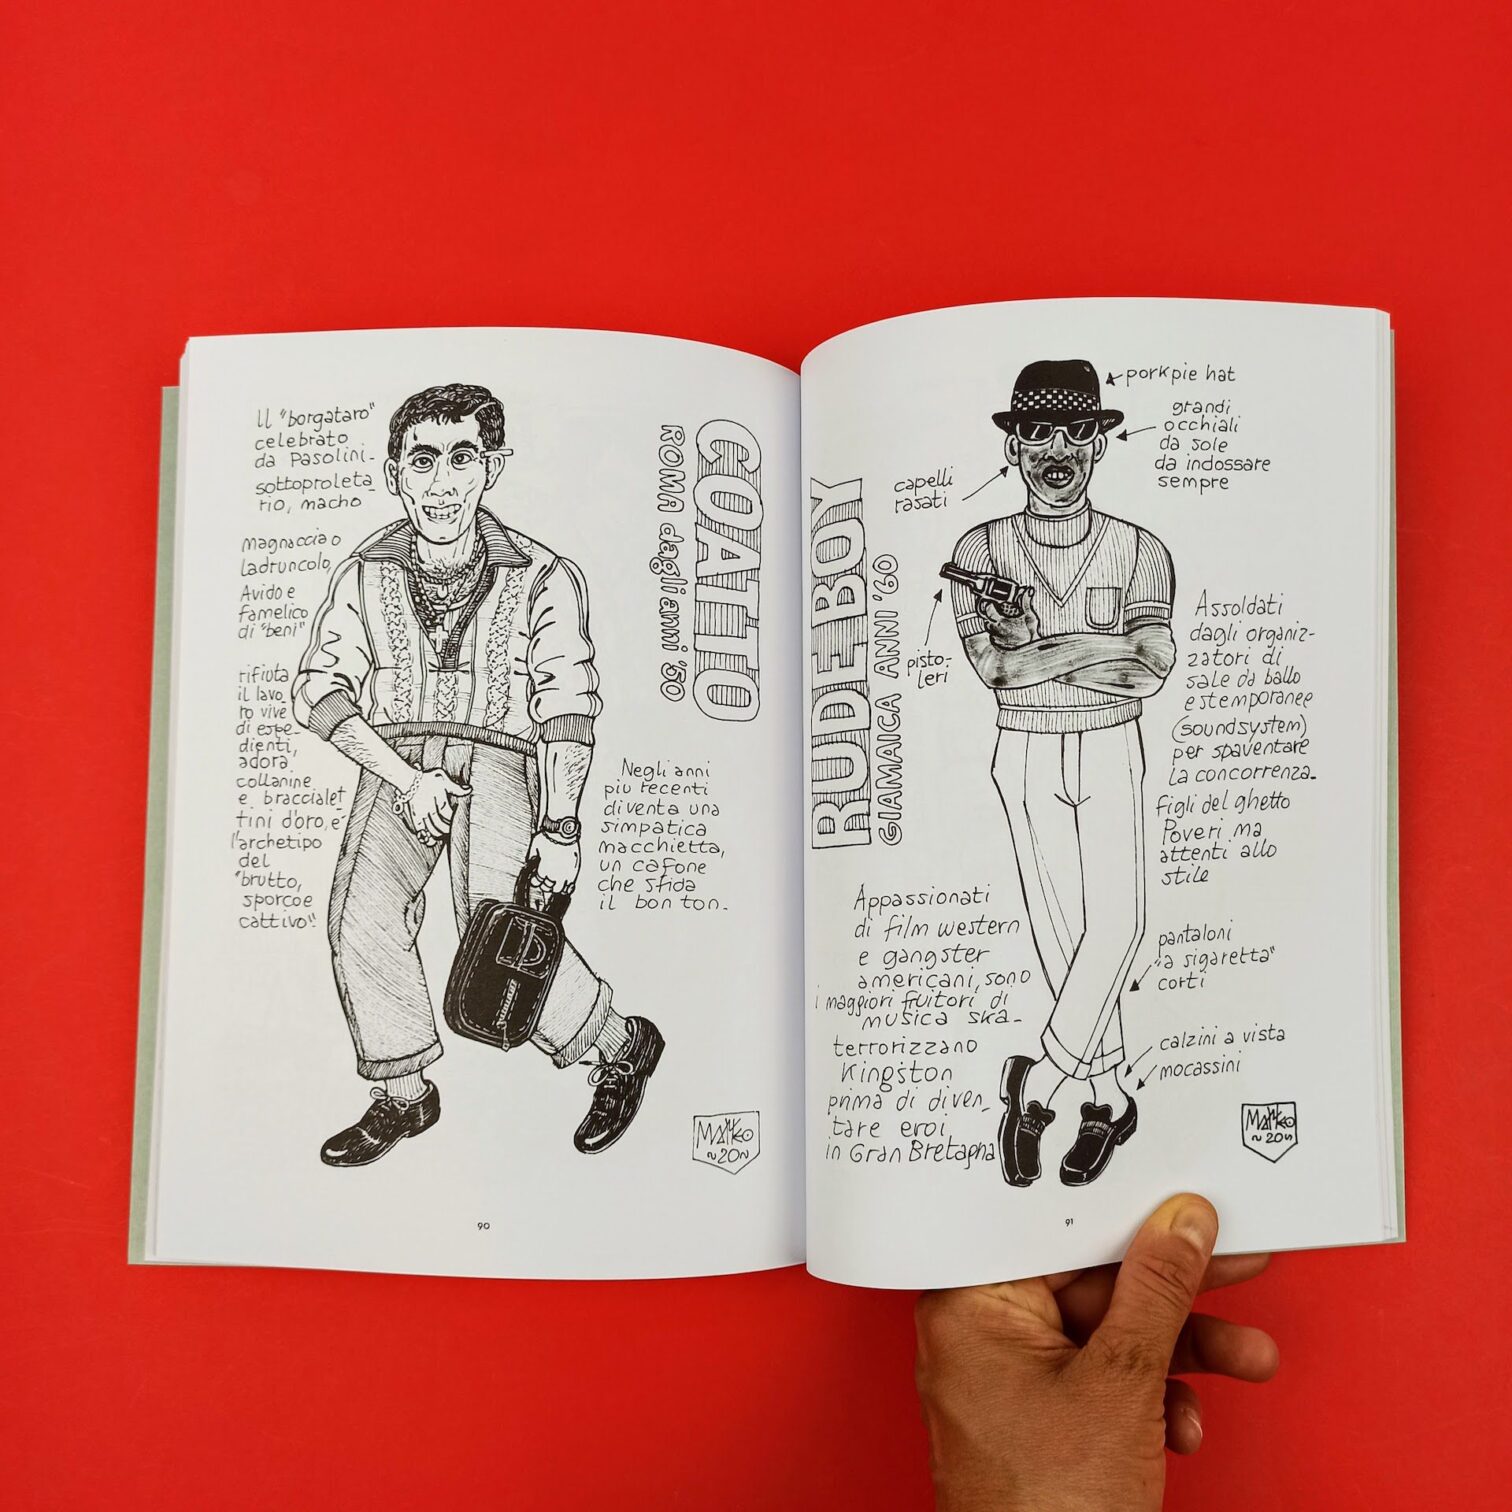 Il "borgataro"
celebrato
da Pasolini-
sottoproleta-
rio, macho
magnaccia o
ladruncolo,
Avido e
famelico
di "beni"
rifiuta
il lavo-
ro vive
di espe-
dienti,
adora
collanine
e braccialet-
tini d'oro, e'
l'archetipo
del
"brutto,
sporco e
cattivo".
COATTO
ROMA dagli anni '50
Negli anni
più recenti
diventa una
simpatica
macchietta,
un cafone
che sfida
il bon ton.
MAЯKO
~20~
90
RUDE BOY
GIAMAICA ANNI '60
porkpie hat
grandi
occhiali
da sole
da indossare
sempre
capelli
rasati
pisto-
leri
Assoldati
dagli organiz-
zatori di
sale da ballo
estemporanee
(soundsystem)
per spaventare
la concorrenza.
figli del ghetto
Poveri, ma
attenti allo
stile
Appassionati
di film western
e gangster
americani, sono
i maggiori fruitori di
musica ska-
terrorizzano
Kingston
prima di diven-
tare eroi
in Gran Bretagna
pantaloni
"a sigaretta"
corti
calzini a vista
mocassini
91